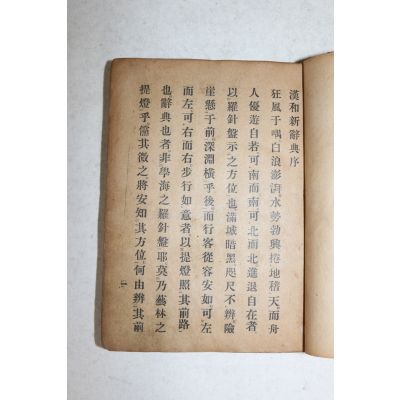 漢和新辭典序
狂風于喁白浪澎湃水勢勃興捲地稽天而舟
人優遊自若可南而南可北而北進退自在者
以羅針盤示之方位也滿城暗黑咫尺不辨險
崖懸于前深淵橫乎後而行客從容安如可左
而左可右而右步行如意者以提燈照其前路
也辭典也者非學海之羅針盤耶莫乃藝林之
提燈乎儒其微之將安知其方位何由辨其前